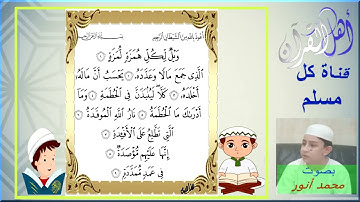 أعوذ بالله من الشيطان الرجيم
وَيْلٌ لِّكُلِّ هُمَزَةٍ لُّمَزَةٍ ١
الَّذِى جَمَعَ مَالًا وَعَدَّدَهُ ٢ يَحْسَبُ أَنَّ مَالَهُ
أَخْلَدَهُ ٣ كَلَّا لَيُنۢبَذَنَّ فِى الْحُطَمَةِ ٤ وَمَا
أَدْرَىٰكَ مَا الْحُطَمَةُ ٥ نَارُ اللَّهِ الْمُوقَدَةُ ٦
الَّتِى تَطَّلِعُ عَلَى الْأَفْـِٔدَةِ ٧
إِنَّهَا عَلَيْهِم مُّؤْصَدَةٌ ٨
فِى عَمَدٍ مُّمَدَّدَةٍ ٩
أهل القرآن
قناة كل
مسلم
بصوت
محمد أنور